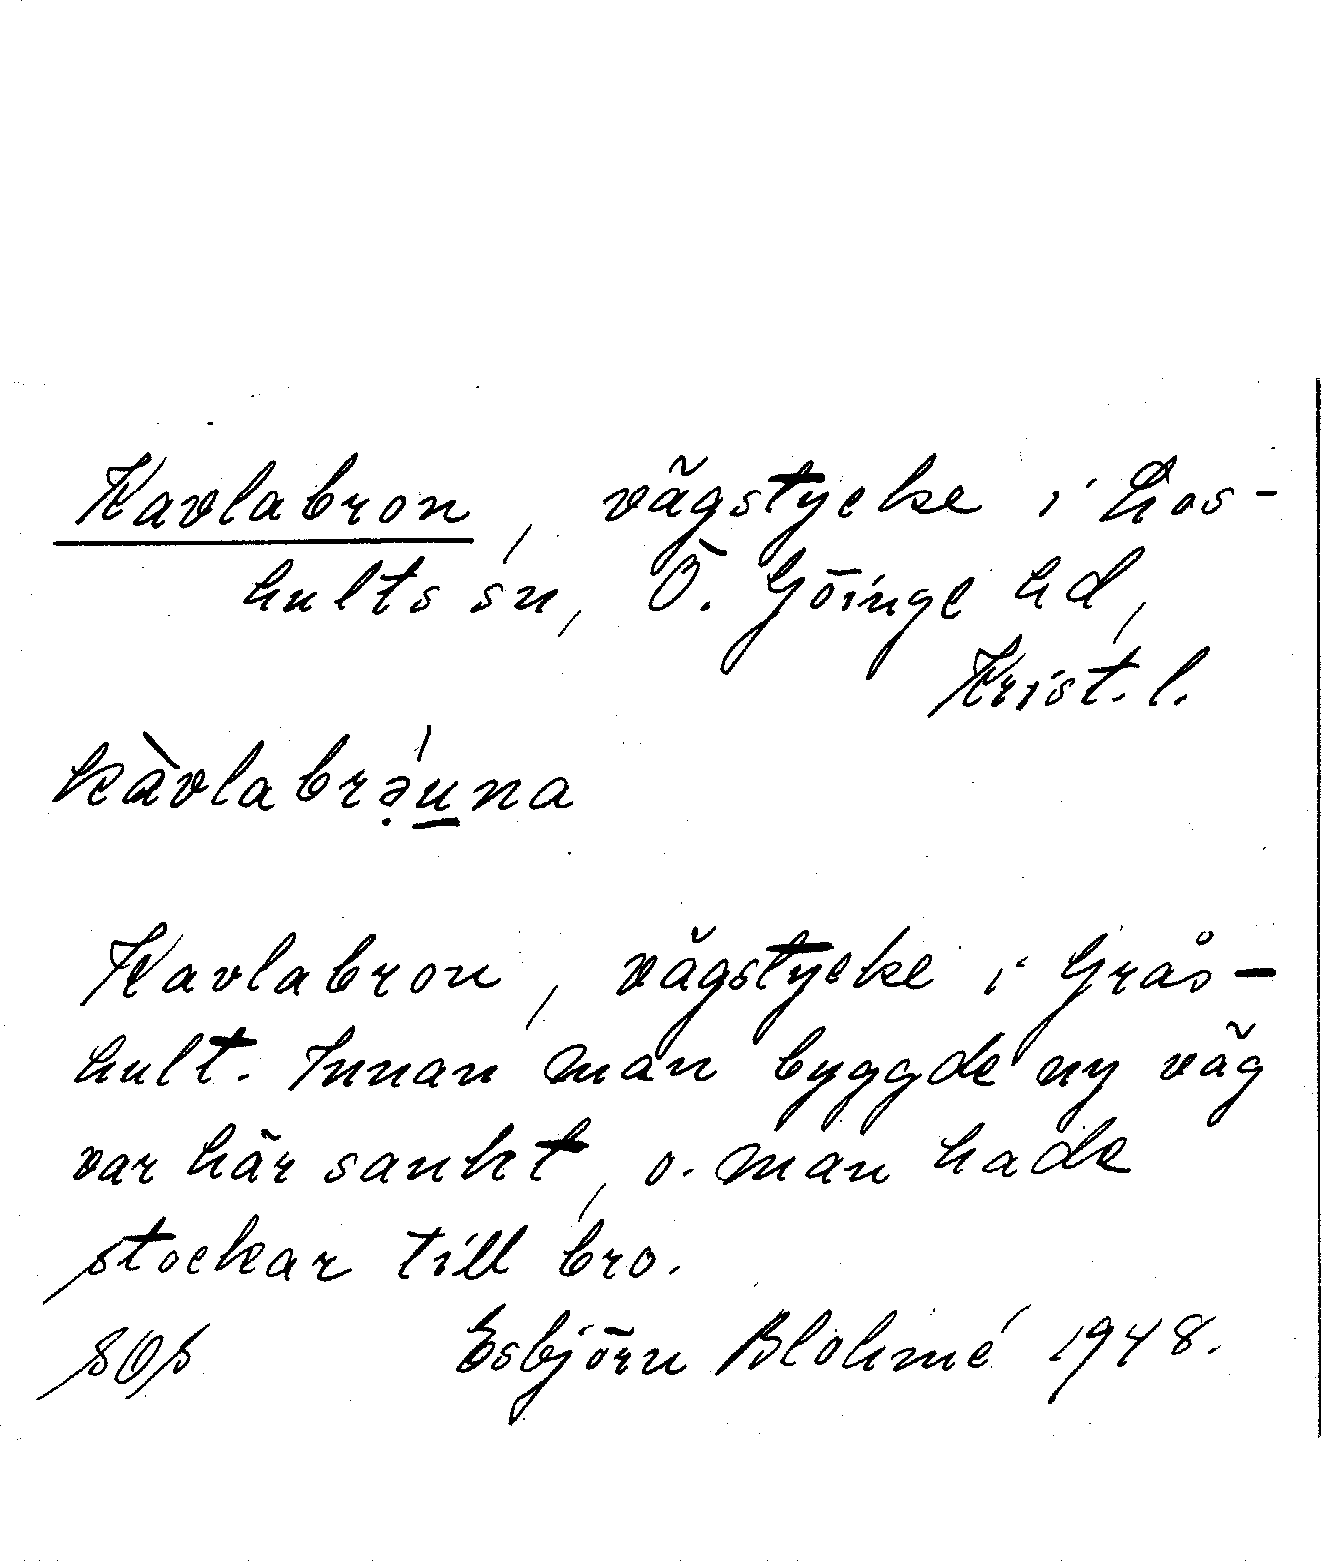 Kavlabron, vägstycke i Los-
hults sn, Ö. Göinge hd,
Krist. l.
kàvlabrə̣́u̲na
Kavlabron, vägstycke i Grås-
hult. Innan man byggde ny väg
var här sankt, o. man hade
stockar till bro.
Esbjörn Blohmé 1948.